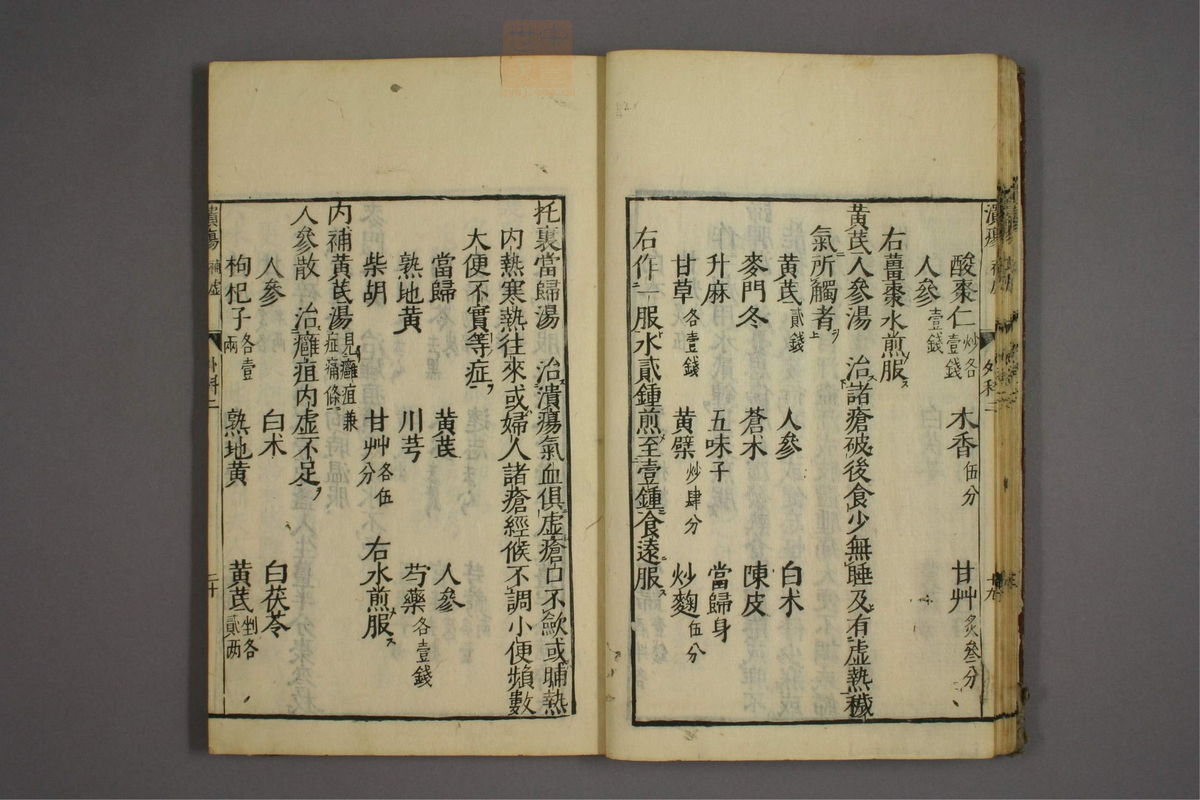 酸棗仁炒各壹錢 木香伍分 甘艸炙叄分
人參壹錢
右薑棗水煎服
黃芪人參湯 治諸瘡破後食少無睡及有虛熱穢
氣所觸者
黃芪貳錢 人參 白朮
麥門冬 蒼朮 陳皮
升麻 五味子 當歸身
甘草各壹錢 黃檗炒肆分 炒麴伍分
右作一服水貳鍾煎至壹鍾食遠服
托裏當歸湯 治潰瘍氣血俱虛瘡口不斂或晡熱
內熱寒熱往來或婦人諸瘡經候不調小便頻數
大便不實等症
當歸 黃芪 人參
熟地黃 川芎 芍藥各壹錢
柴胡 甘艸各伍分 右水煎服
內補黃芪湯見癰疽兼症痛條
人參散 治癰疽內虛不足
人參 白朮 白茯苓
枸杞子各壹兩 熟地黃 黃芪剉各貳兩
潰瘍 補虛 外科二 二十